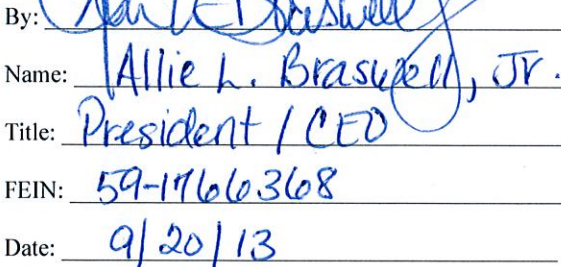 By:
Name: Allie L. Braswell, Jr.
Title: President / CEO
FEIN: 59-1766368
Date: 9/20/13